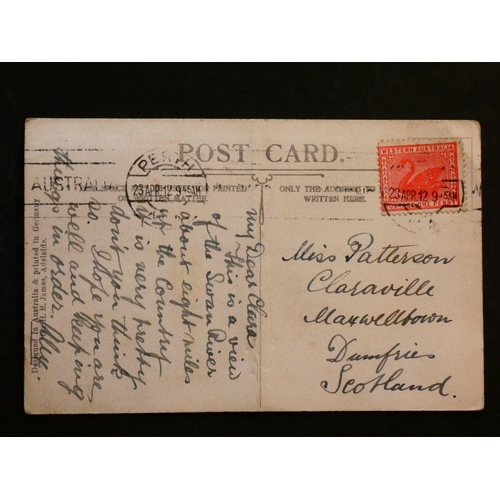 POST CARD.
WESTERN AUSTRALIA
PERTH
23 APR.12 9-5AM
23 APR.12 9-5AM
AUSTRALIA
PRINTED
OR WRITTEN MATTER.
ONLY THE ADDRESS TO
WRITTEN HERE.
My Dear Clare
This is a view
of the Swan River
about eight miles
up the Country
it is very pretty
dont you think
so. I hope you are
well and keeping
things in order
Miss Patterson
Claraville
Maxwelltown
Dumfries
Scotland.
Designed in Australia & printed in Germany
R. James, Adelaide.